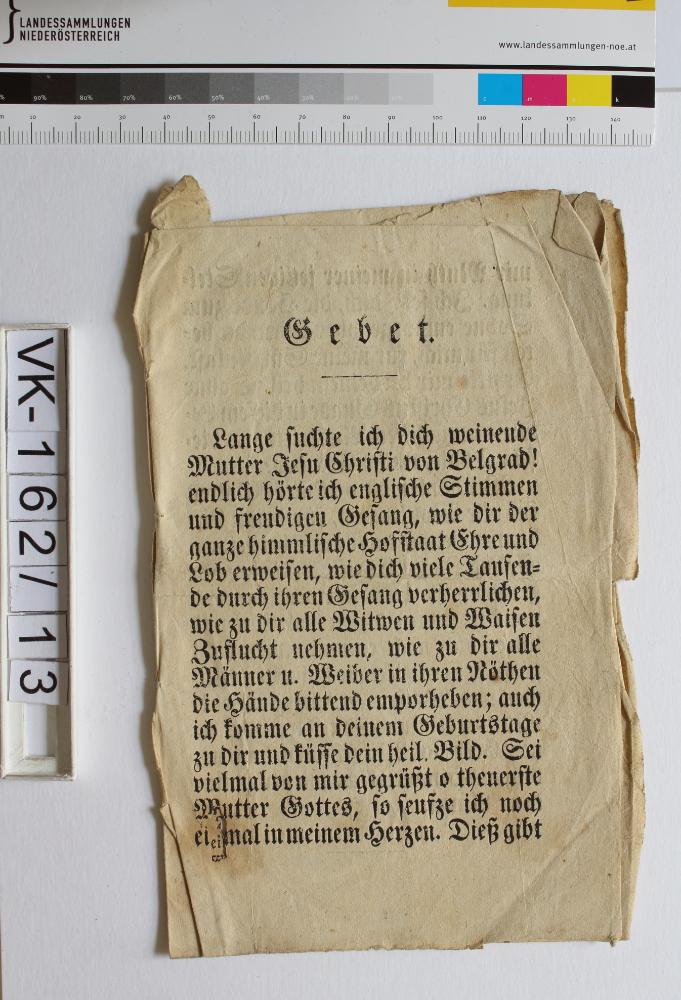 LANDESSAMMLUNGEN
NIEDERÖSTERREICH
www.landessammlungen-noe.at
90% 80% 70% 60% 50% 40% 30% 20% 10% c m y k
10 20 30 40 50 60 70 80 90 100 110 120 130 140
VK-162/13
Gebet.
Lange suchte ich dich weinende
Mutter Jesu Christi von Belgrad!
endlich hörte ich englische Stimmen
und freudigen Gesang, wie dir der
ganze himmlische Hofstaat Ehre und
Lob erweisen, wie dich viele Tausen=
de durch ihren Gesang verherrlichen,
wie zu dir alle Witwen und Waisen
Zuflucht nehmen, wie zu dir alle
Männer u. Weiber in ihren Nöthen
die Hände bittend emporheben; auch
ich komme an deinem Geburtstage
zu dir und küsse dein heil. Bild. Sei
vielmal von mir gegrüßt o theuerste
Mutter Gottes, so seufze ich noch
einmal in meinem Herzen. Dieß gibt